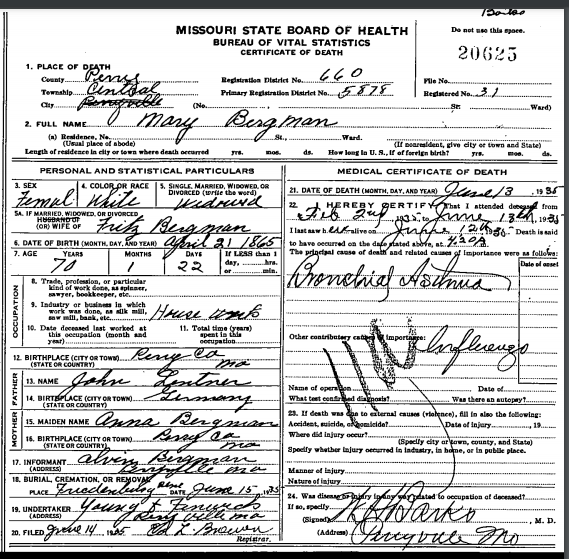 MISSOURI STATE BOARD OF HEALTH
BUREAU OF VITAL STATISTICS
CERTIFICATE OF DEATH
Do not use this space.
20625
1. PLACE OF DEATH
County Perry Registration District No. 660 File No.
Township Central Primary Registration District No. 5878 Registered No. 31
City Perryville (No. St. Ward)
2. FULL NAME Mary Bergman
(a) Residence, No. St., Ward.
(Usual place of abode) (If nonresident, give city or town and State)
Length of residence in city or town where death occurred yrs. mos. ds. How long in U. S., if of foreign birth? yrs. mos. ds.
PERSONAL AND STATISTICAL PARTICULARS
3. SEX 4. COLOR OR RACE 5. SINGLE, MARRIED, WIDOWED, OR DIVORCED (write the word)
Femal White Widowed
5A. IF MARRIED, WIDOWED, OR DIVORCED
HUSBAND OF
(OR) WIFE OF Fritz Bergman
6. DATE OF BIRTH (MONTH, DAY, AND YEAR) April 21 1865
7. AGE YEARS MONTHS DAYS If LESS than 1 day, hrs. or min.
70 1 22
OCCUPATION
8. Trade, profession, or particular kind of work done, as spinner, sawyer, bookkeeper, etc.
9. Industry or business in which work was done, as silk mill, saw mill, bank, etc. House work
10. Date deceased last worked at this occupation (month and year)
11. Total time (years) spent in this occupation
12. BIRTHPLACE (CITY OR TOWN) Perry Co
(STATE OR COUNTRY) Mo
FATHER
13. NAME John
14. BIRTHPLACE (CITY OR TOWN) Germany
(STATE OR COUNTRY)
MOTHER
15. MAIDEN NAME Anna Bergman
16. BIRTHPLACE (CITY OR TOWN) Perry Co
(STATE OR COUNTRY) Mo
17. INFORMANT Alvin Bergman
(ADDRESS) Perryville Mo
18. BURIAL, CREMATION, OR REMOVAL
PLACE Friedenburg DATE June 15, 1935
19. UNDERTAKER Young &
(ADDRESS) Perryville Mo
20. FILED June 14 1935
Registrar.
MEDICAL CERTIFICATE OF DEATH
21. DATE OF DEATH (MONTH, DAY, AND YEAR) June 13, 1935
22. I HEREBY CERTIFY, That I attended deceased from
Feb 2nd, 1935, to June 13th, 1935
I last saw her alive on June 12th, 1935 Death is said
to have occurred on the date stated above, at
The principal cause of death and related causes of importance were as follows:
Date of onset
Bronchial Asthma
Other contributory causes of importance:
Influenza
Name of operation Date of
What test confirmed diagnosis? Was there an autopsy?
23. If death was due to external causes (violence), fill in also the following:
Accident, suicide, or homicide? Date of injury 19
Where did injury occur?
(Specify city or town, county, and State)
Specify whether injury occurred in industry, in home, or in public place.
Manner of injury
Nature of injury
24. Was disease or injury in any way related to occupation of deceased?
If so, specify
(Signed) M. D.
(Address) Perryville Mo